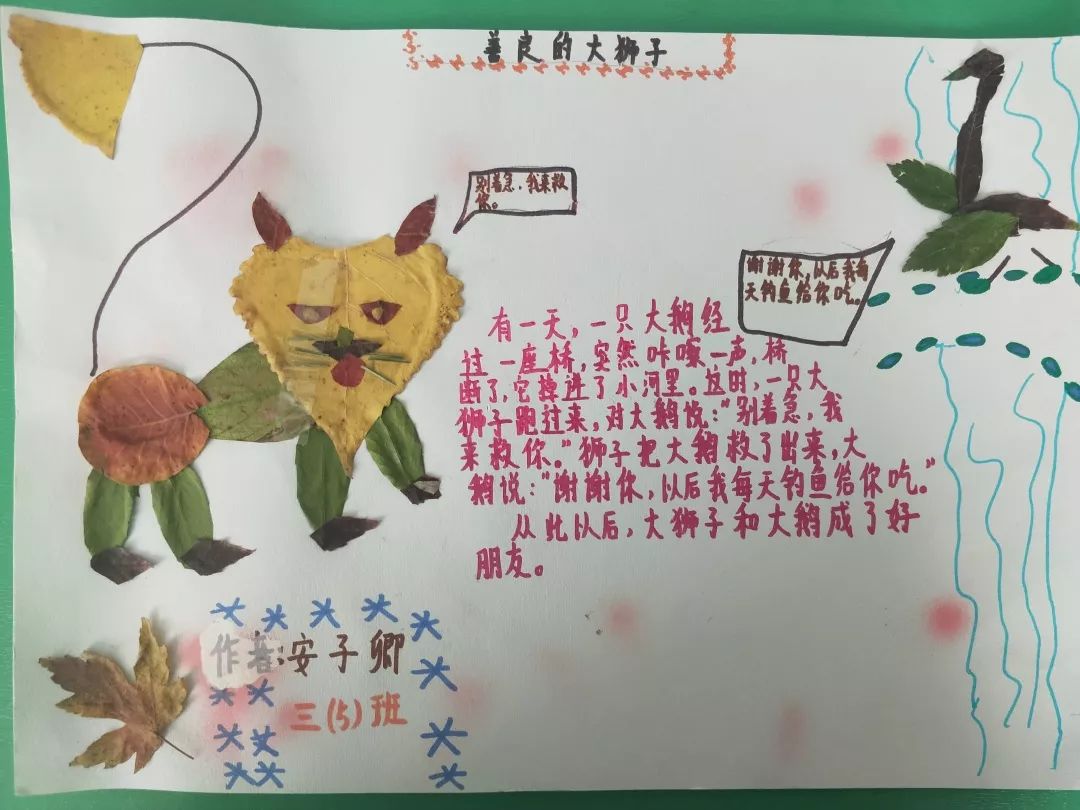 善良的大狮子
别着急，我来救
你。
谢谢你，以后我每
天钓鱼给你吃。
有一天，一只大鹅经
过一座桥，突然咔嚓一声，桥
断了，它掉进了小河里。这时，一只大
狮子跑过来，对大鹅说：“别着急，我
来救你。”狮子把大鹅救了出来，大
鹅说：“谢谢你，以后我每天钓鱼给你吃。”
从此以后，大狮子和大鹅成了好
朋友。
作者：安子卿
三（5）班